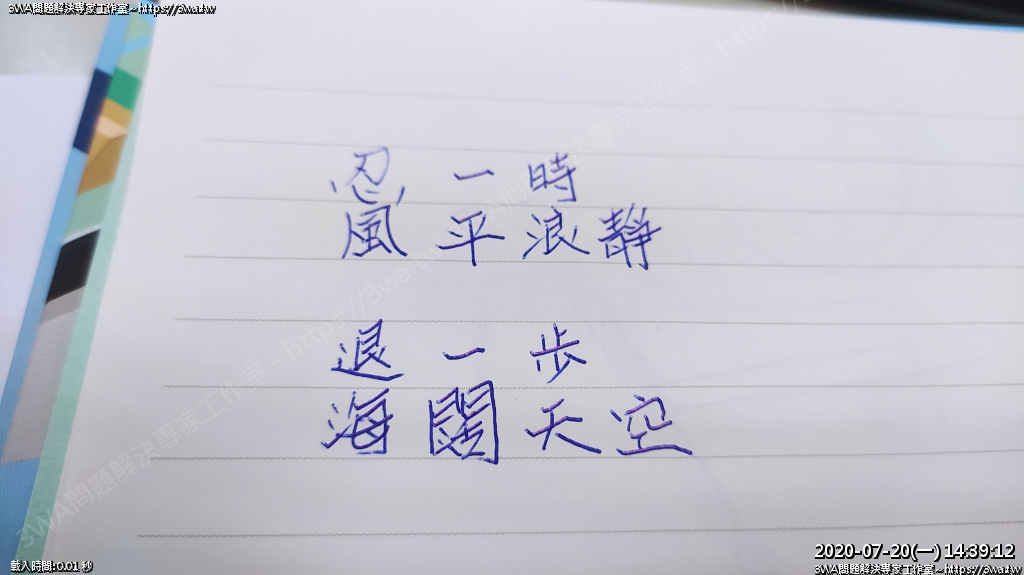 3WA問題解決專家工作室~https://3wa.tw
忍一時
風平浪靜
退一步
海闊天空
3WA問題解決專家工作室~https://3wa.tw
載入時間:0.01 秒
2020-07-20(一) 14:39:12
3WA問題解決專家工作室~https://3wa.tw